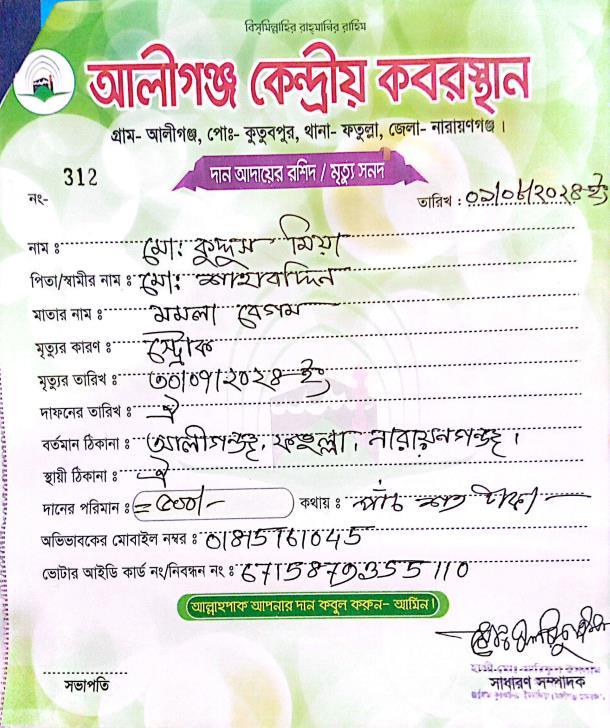 বিস্‌মিল্লাহির রাহ্‌মানির রাহিম
আলীগঞ্জ কেন্দ্রীয় কবরস্থান
গ্রাম- আলীগঞ্জ, পোঃ- কুতুবপুর, থানা- ফতুল্লা, জেলা- নারায়ণগঞ্জ।
দান আদায়ের রশিদ / মৃত্যু সনদ
নং- 312
তারিখ : ০১/০৮/২০২৪ ইং
নাম ঃ মো: কুদ্দুস মিয়া
পিতা/স্বামীর নাম ঃ মো: শাহাবদ্দিন
মাতার নাম ঃ মমলা বেগম
মৃত্যুর কারণ ঃ স্ট্রোক
মৃত্যুর তারিখ ঃ ৩০/০৭/২০২৪ ইং
দাফনের তারিখ ঃ ঐ
বর্তমান ঠিকানা ঃ আলীগন্জ, ফতুল্লা, নারায়নগন্জ।
স্থায়ী ঠিকানা ঃ ঐ
দানের পরিমান ঃ = ৫০০/- কথায় ঃ পাঁচ শত টাকা
অভিভাবকের মোবাইল নম্বর ঃ 01845761045
ভোটার আইডি কার্ড নং/নিবন্ধন নং ঃ 6715879355110
আল্লাহপাক আপনার দান কবুল করুন- আমিন।
সভাপতি
সাধারণ সম্পাদক